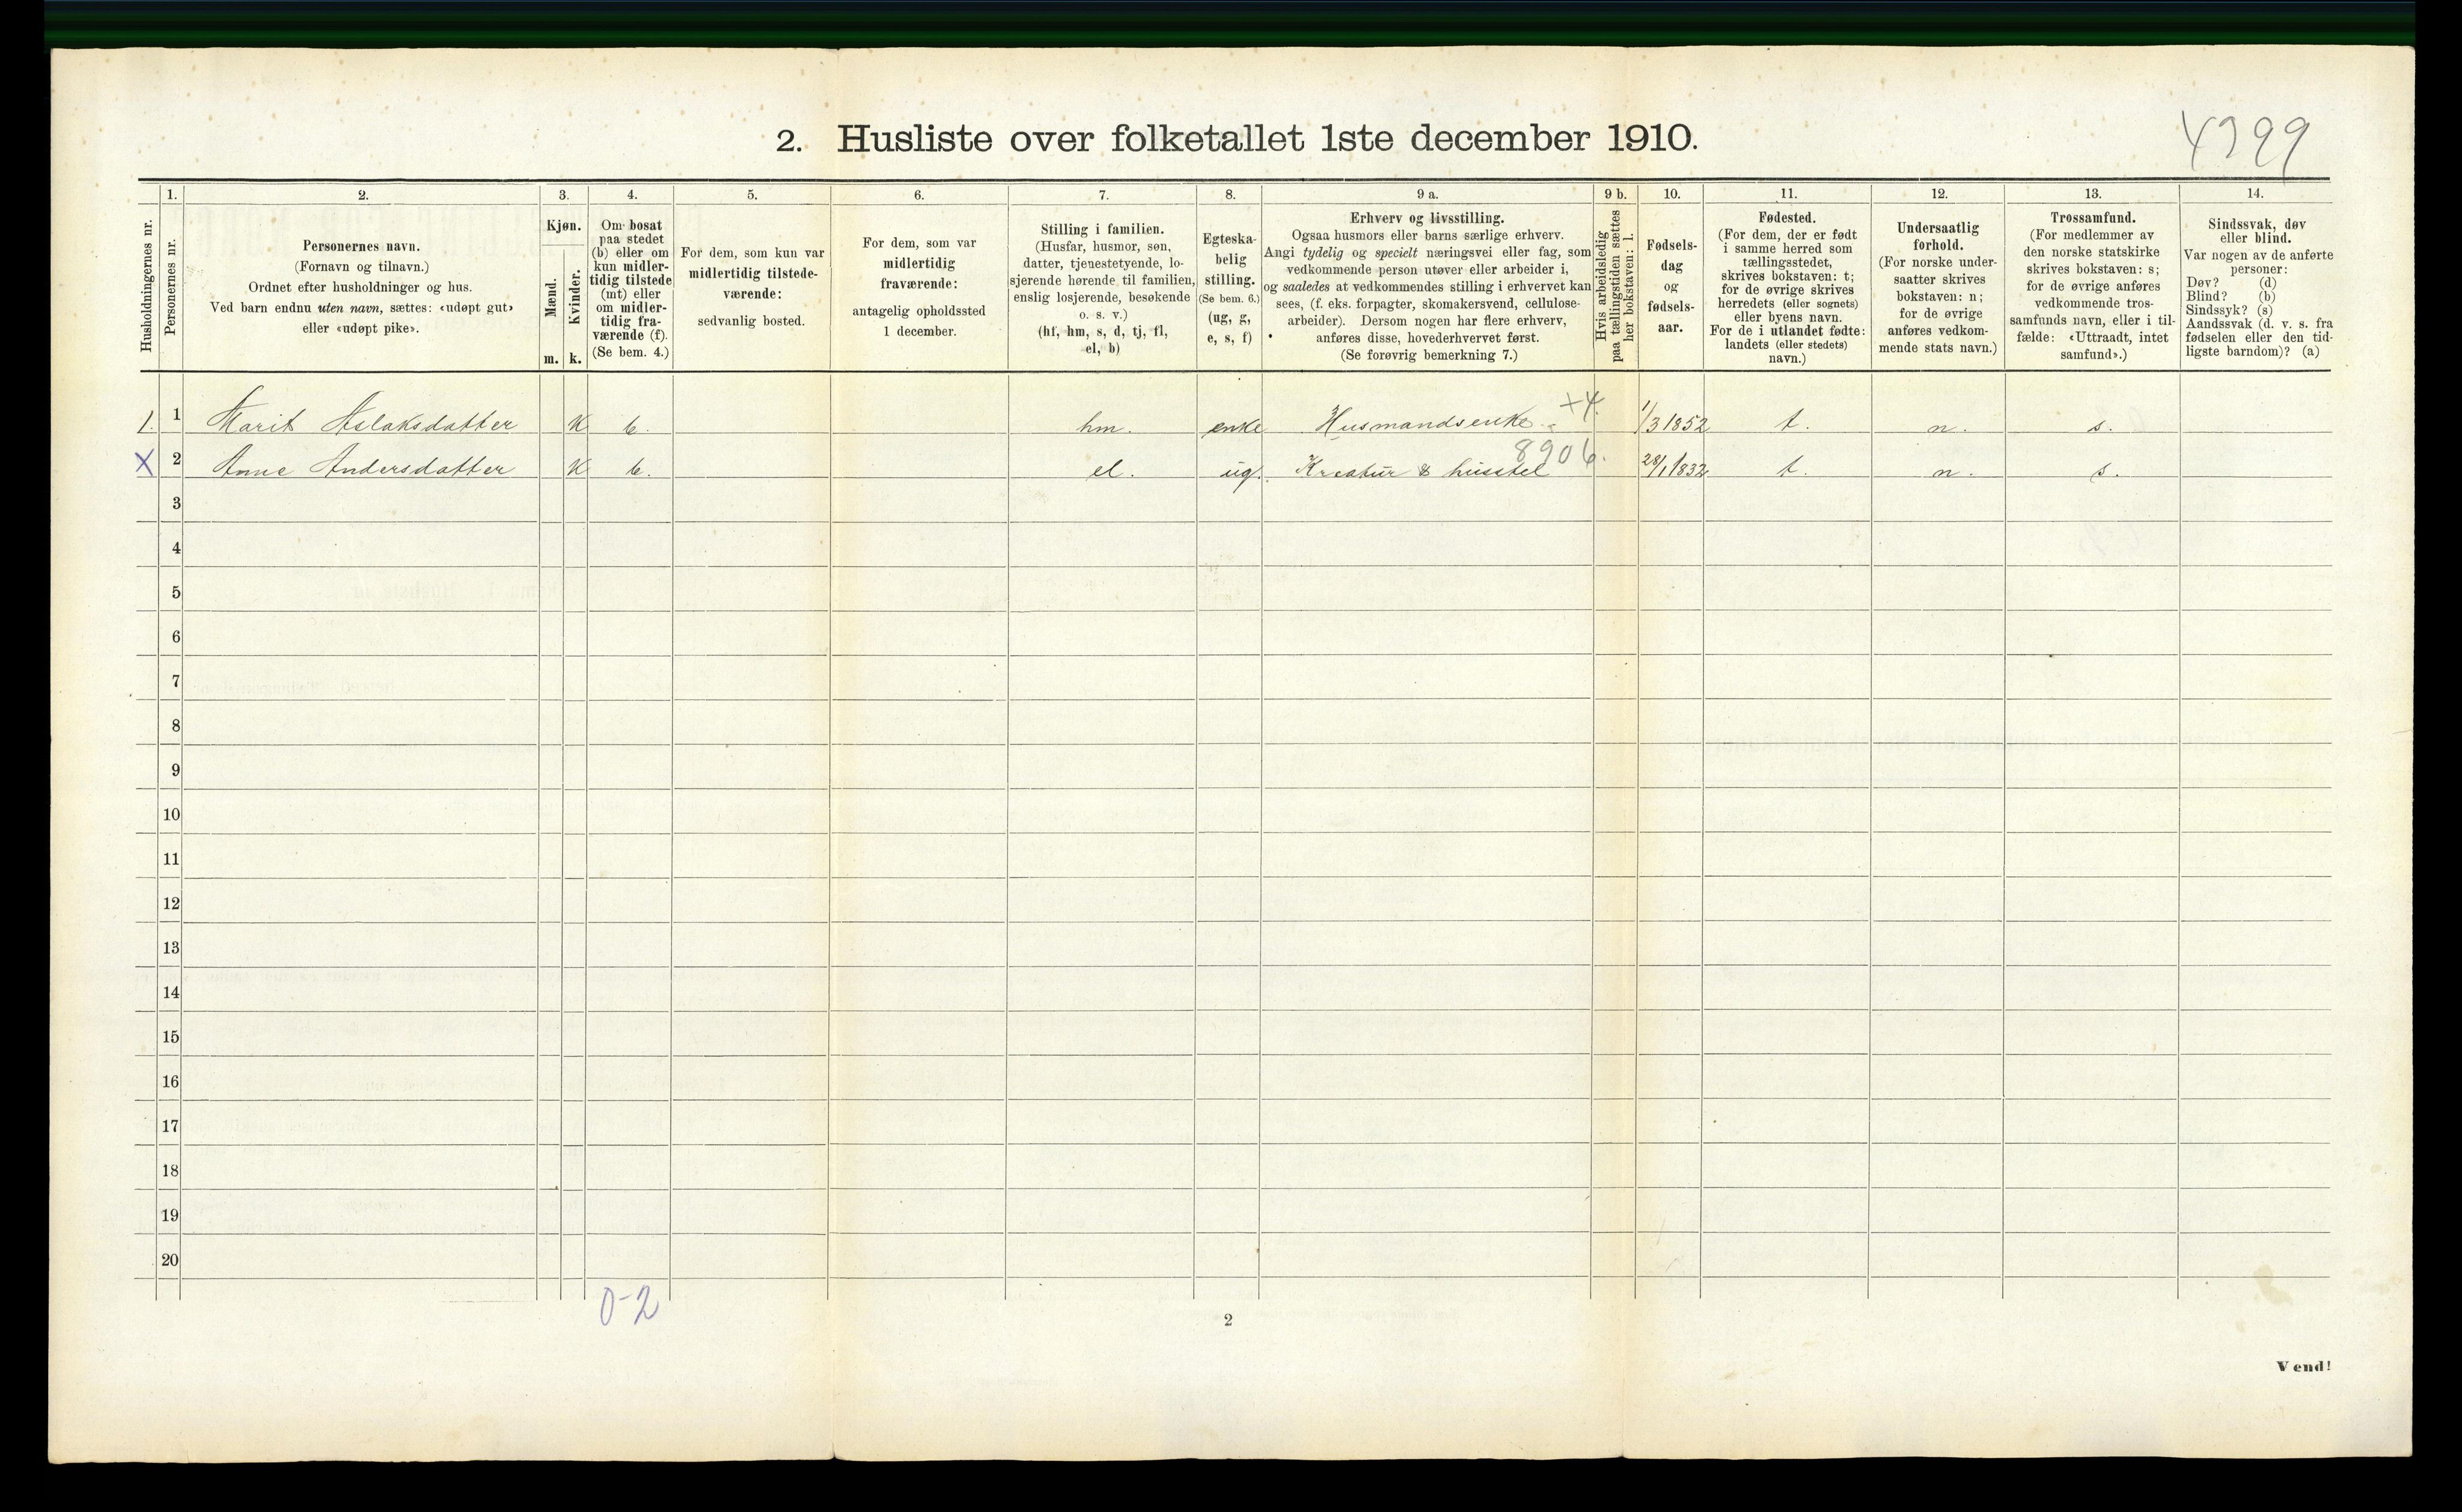 4399
2. Husliste over folketallet 1ste december 1910.
Husholdningernes nr.
1.
Personernes nr.
2.
Personernes navn.
(Fornavn og tilnavn.)
Ordnet efter husholdninger og hus.
Ved barn endnu uten navn, sættes: «udøpt gut»
eller «udøpt pike».
3.
Kjøn.
Mænd.
m.
Kvinder.
k.
4.
Om bosat
paa stedet
(b) eller om
kun midler-
tidig tilstede
(mt) eller
om midler-
tidig fra-
værende (f).
(Se bem. 4.)
5.
For dem, som kun var
midlertidig tilstede-
værende:
sedvanlig bosted.
6.
For dem, som var
midlertidig
fraværende:
antagelig opholdssted
1 december.
7.
Stilling i familien.
(Husfar, husmor, søn,
datter, tjenestetyende, lo-
sjerende hørende til familien,
enslig losjerende, besøkende
o. s. v.)
(hf, hm, s, d, tj, fl,
el, b)
8.
Egteska-
belig
stilling.
(Se bem. 6.)
(ug, g,
e, s, f)
9 a.
Erhverv og livsstilling.
Ogsaa husmors eller barns særlige erhverv.
Angi tydelig og specielt næringsvei eller fag, som
vedkommende person utøver eller arbeider i,
og saaledes at vedkommendes stilling i erhvervet kan
sees, (f. eks. forpagter, skomakersvend, cellulose-
arbeider). Dersom nogen har flere erhverv,
anføres disse, hovederhvervet først.
(Se forøvrig bemerkning 7.)
9 b.
Hvis arbeidsledig
paa tællingstiden sættes
her bokstaven: l.
10.
Fødsels-
dag
og
fødsels-
aar.
11.
Fødested.
(For dem, der er født
i samme herred som
tællingsstedet,
skrives bokstaven: t;
for de øvrige skrives
herredets (eller sognets)
eller byens navn.
For de i utlandet fødte:
landets (eller stedets)
navn.)
12.
Undersaatlig
forhold.
(For norske under-
saatter skrives
bokstaven: n;
for de øvrige
anføres vedkom-
mende stats navn.)
13.
Trossamfund.
(For medlemmer av
den norske statskirke
skrives bokstaven: s;
for de øvrige anføres
vedkommende tros-
samfunds navn, eller i til-
fælde: «Uttraadt, intet
samfund».)
14.
Sindssvak, døv
eller blind.
Var nogen av de anførte
personer:
Døv? (d)
Blind? (b)
Sindssyk? (s)
Aandssvak (d. v. s. fra
fødselen eller den tid-
ligste barndom)? (a)
1. 1 Marit Aslaksdatter K b. hm. enke Husmandsenke. +4. 1/3 1852 t. n. s.
X 2 Anne Andersdatter K b. el. ug. Kreatur & husstel 8906. 28/1 1832 t. n. s.
3
4
5
6
7
8
9
10
11
12
13
14
15
16
17
18
19
20
0-2
2
Vend!